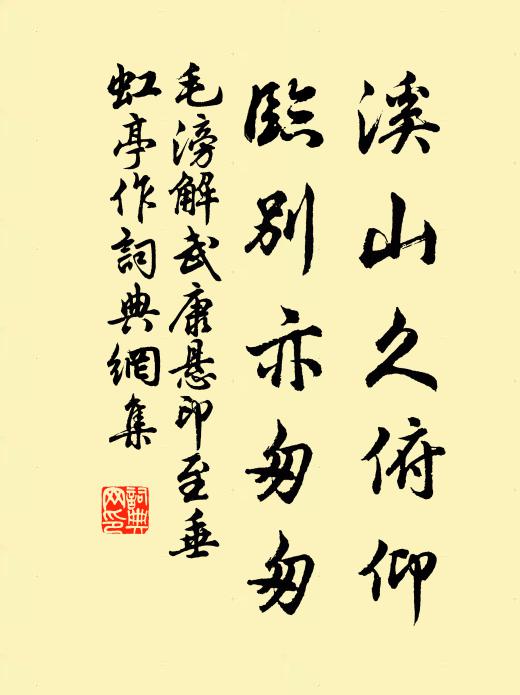 溪山久俯仰
臨別亦匆匆
毛滂解武康悬印至垂
虹亭作詞典網集
詞典网印